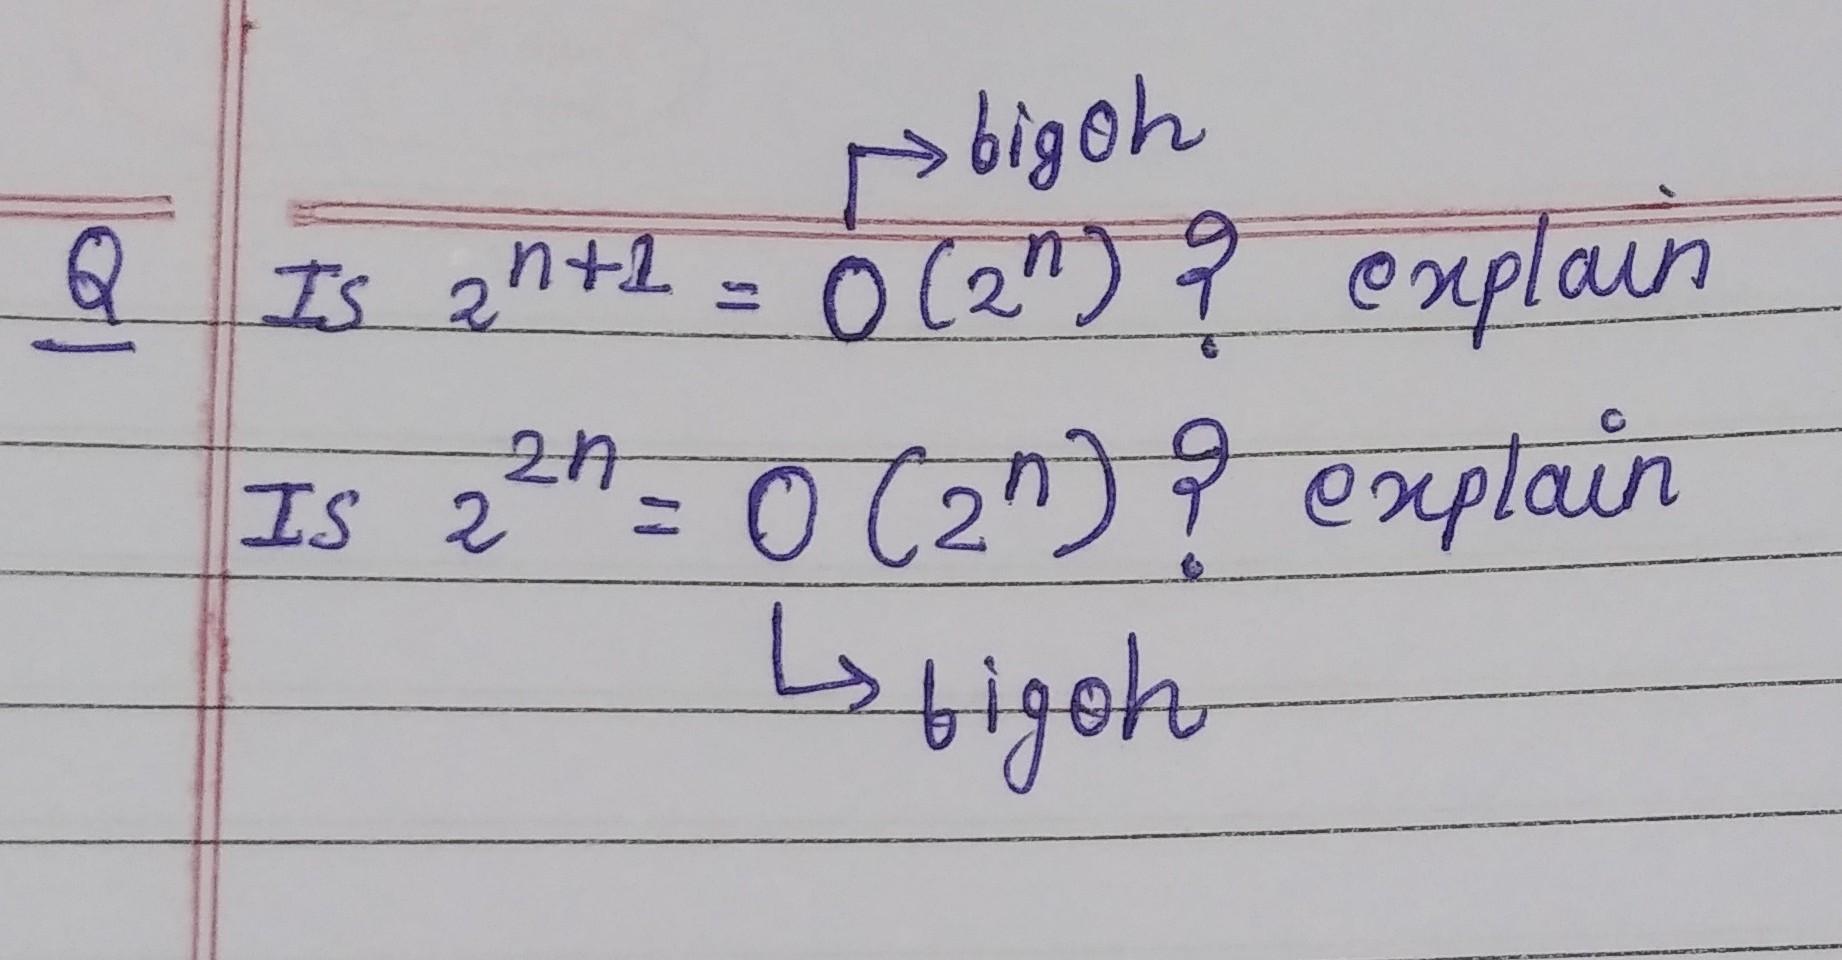 → bigoh
Q Is 2^{n+1} = O(2^n) ? explain
Is 2^{2n} = O(2^n) ? explain
→ bigoh